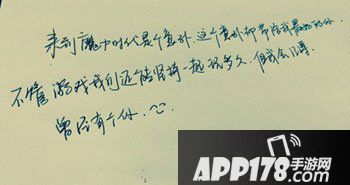 来到魔力时代是个意外,这个意外却带给我最好的你.
不管游戏我们还能坚持一起玩多久,但我会记得
曾经有个你.
APP178手游网